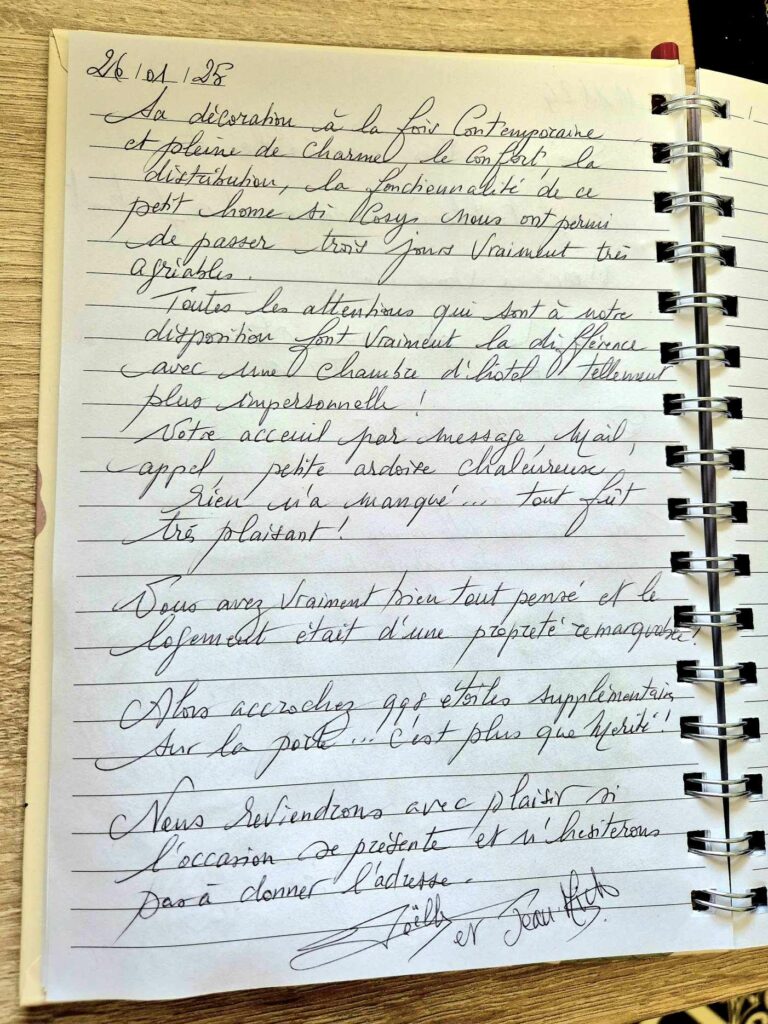 26/01/25
La décoration à la fois Contemporaine
et pleine de charme, le confort, la
distribution, la fonctionnalité de ce
petit home si Cosys nous ont permi
de passer trois jours vraiment très
agriables.
Toutes les attentions qui sont à notre
disposition font vraiment la différence
avec une chambre d'hôtel tellement
plus impersonnelle !
Votre acceuil par message, Mail,
appel, petite ardoise chaleureuse
rien n'a manqué... tout fût
très plaisant !
Vous avez vraiment bien tout pensé et le
logement était d'une propreté remarquable !
Alors accrochez 998 étoiles supplémentaires
sur la porte... c'est plus que Mérité !
Nous reviendrons avec plaisir si
l'occasion se présente et n'hesiterons
pas à donner l'adresse.
et Jean